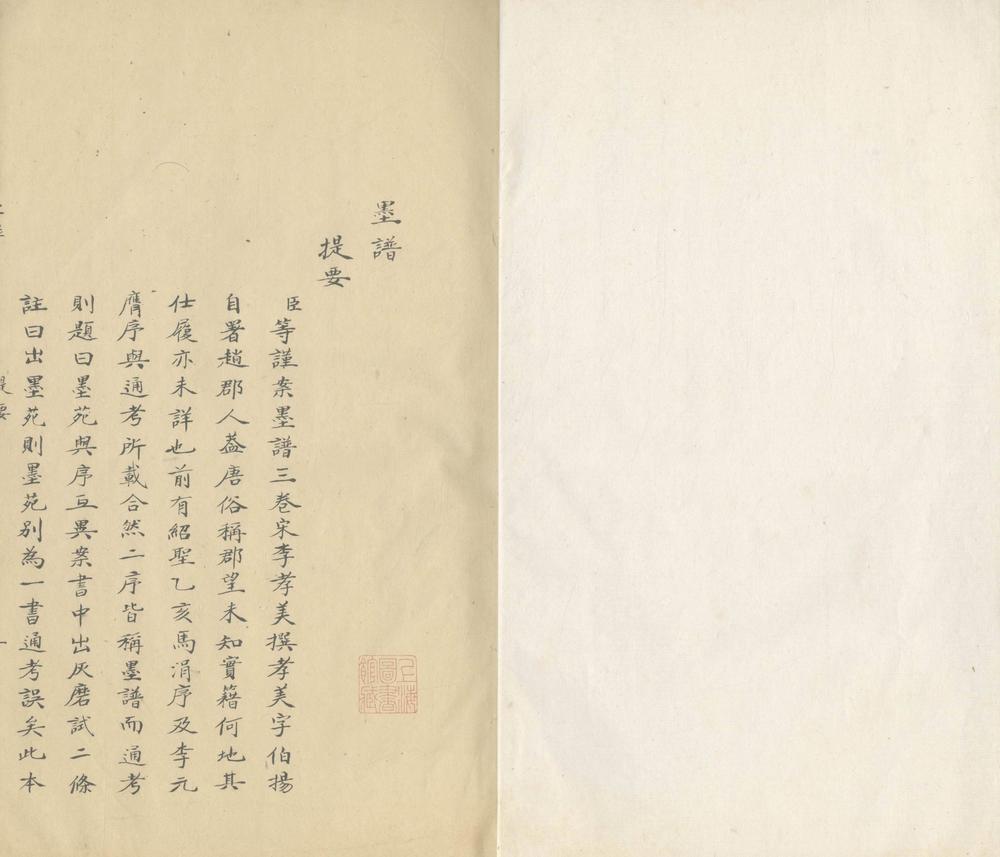 墨譜
提要
臣等謹案墨譜三卷宋李孝美撰孝美字伯揚
自署趙郡人葢唐俗稱郡望未知實籍何地其
仕履亦未詳也前有紹聖乙亥馬涓序及李元
膺序與通考所載合然二序皆稱墨譜而通考
則題曰墨苑與序互異案書中出灰磨試二條
註曰出墨苑則墨苑别為一書通考誤矣此本
提要
一
上海圖書館藏